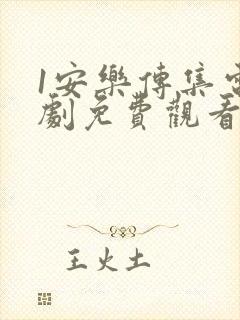 1安樂傳集電
劇免費觀看
王火土